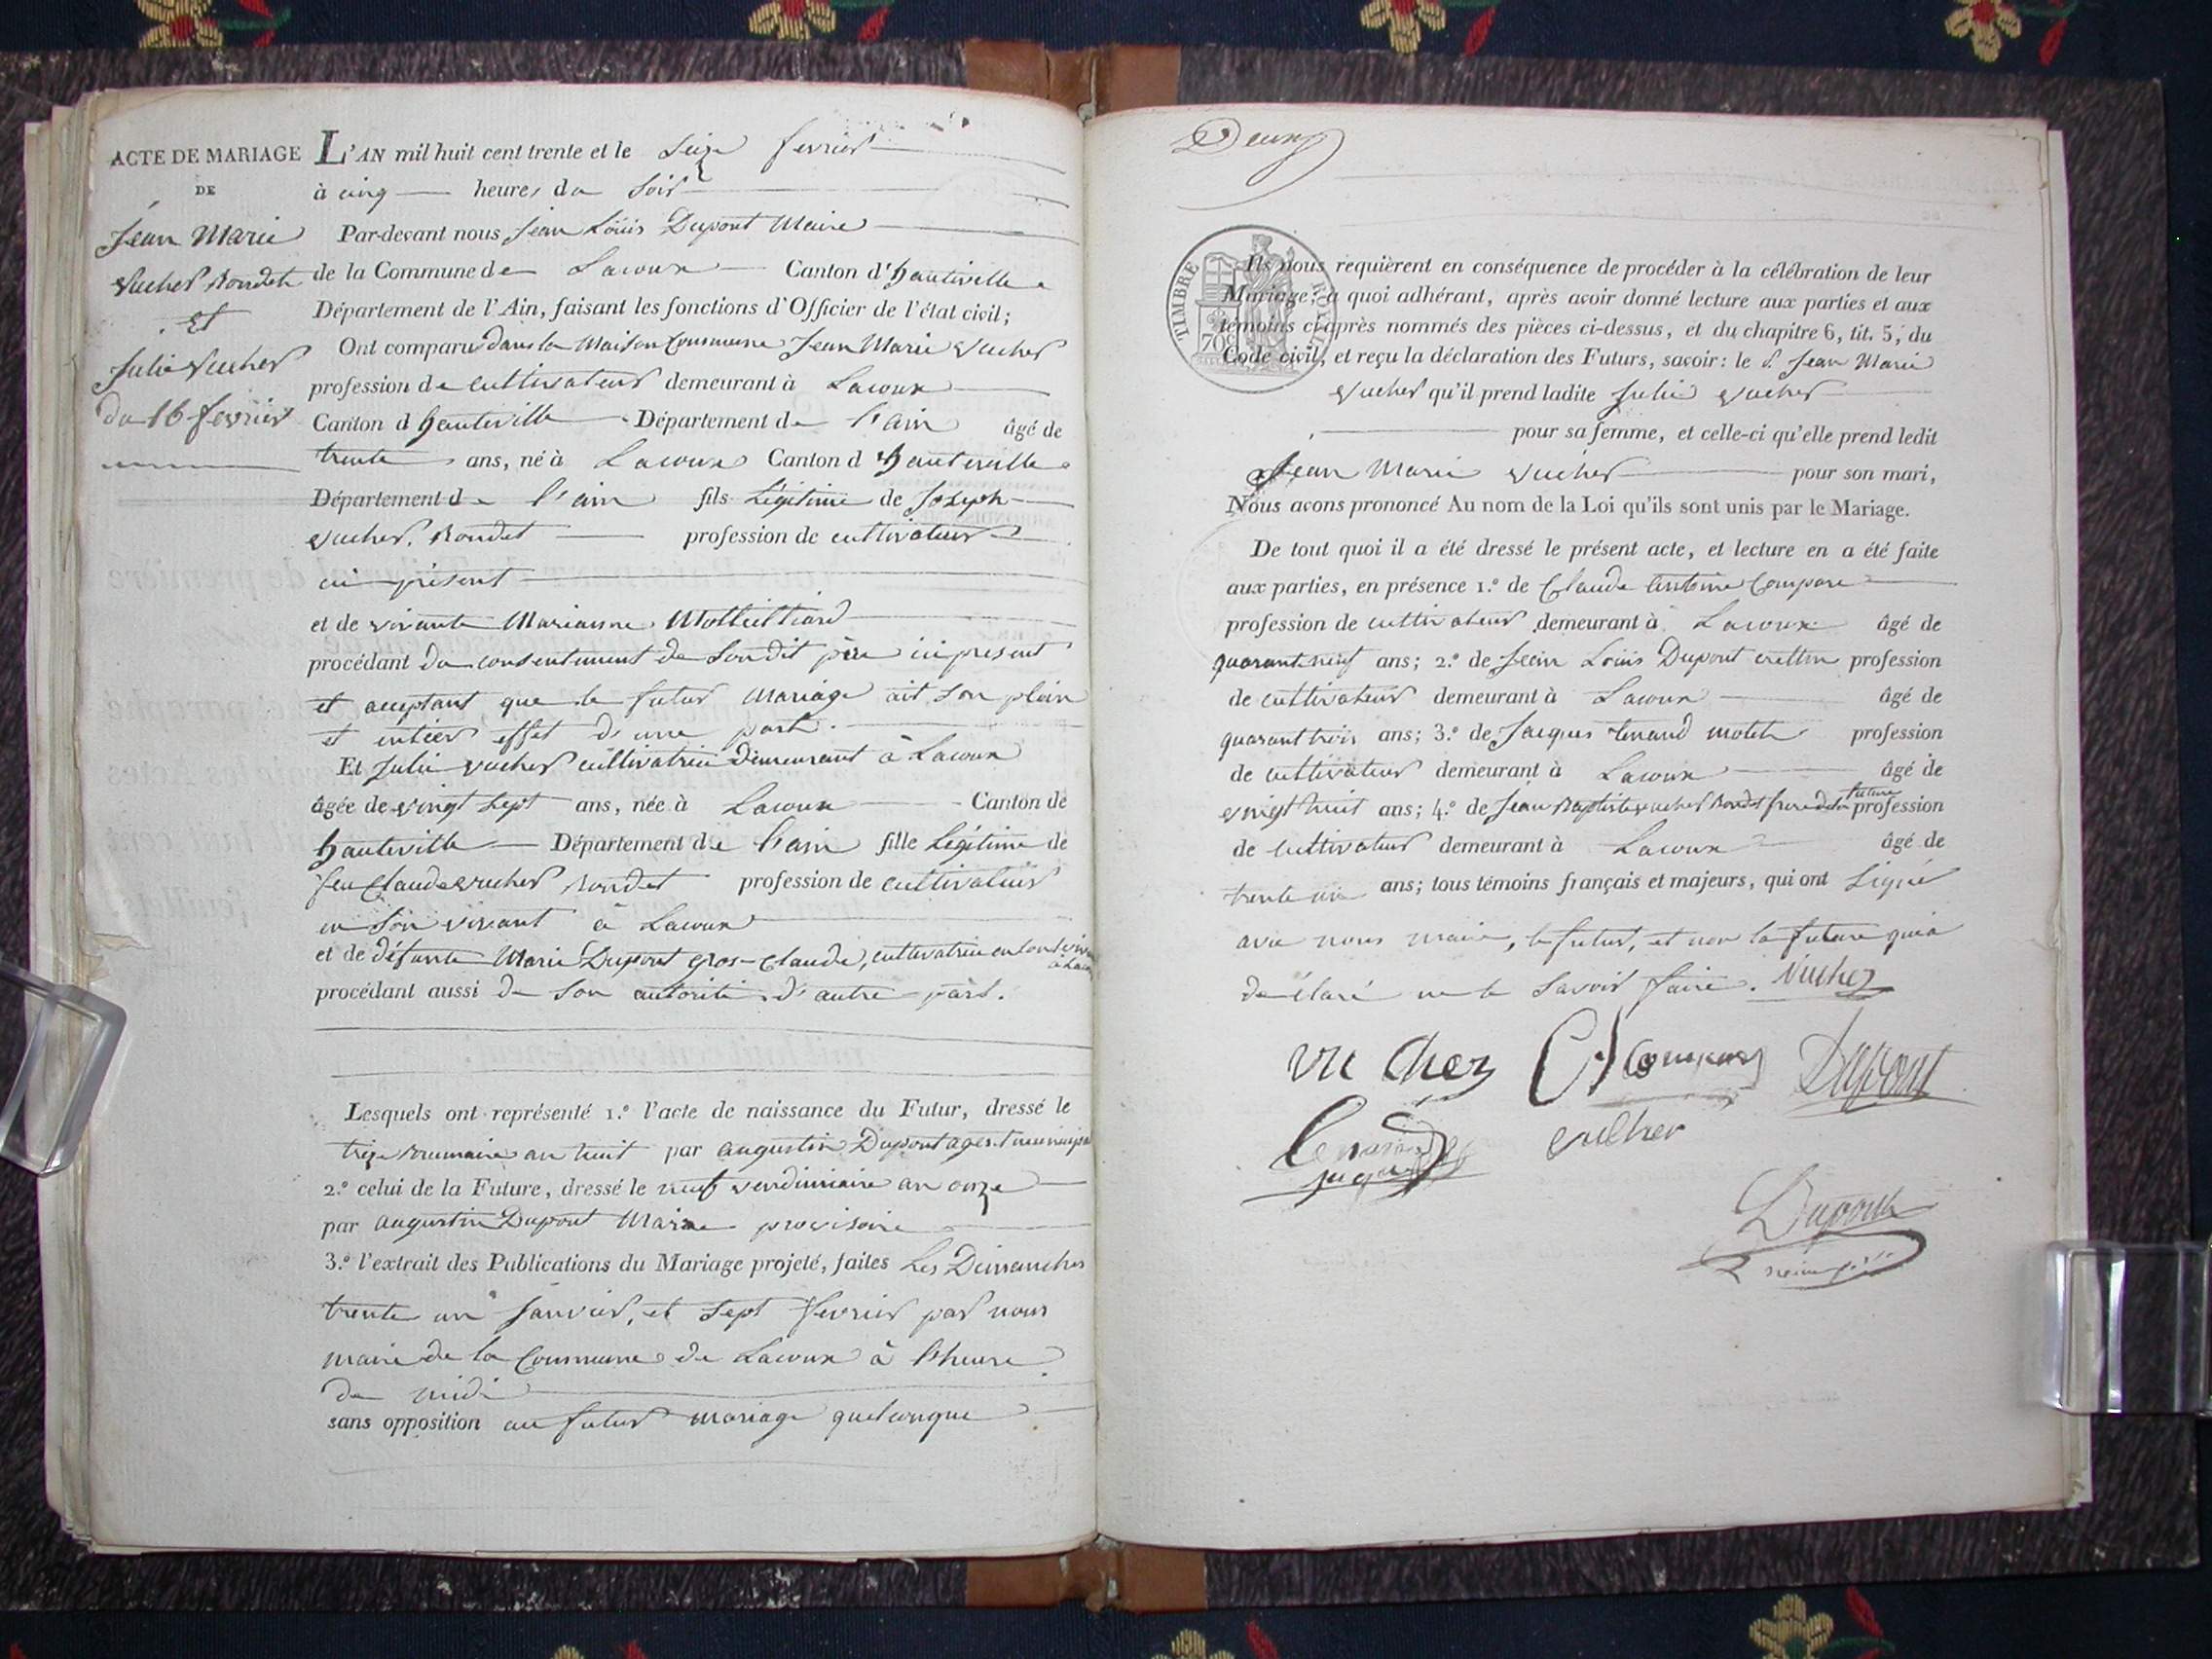 ACTE DE MARIAGE
DE
Jean Marie
Vuchet Rondet
Et
Julie Vuchet
du 16 fevrier
L'AN mil huit cent trente et le Seize fevrier
à cinq heures du Soir
Par-devant nous Jean Loüis Dupont Maire
de la Commune de Lacoux Canton d'hauteville
Département de l'Ain, faisant les fonctions d'Officier de l'état civil;
Ont comparu dans la Maison Commune Jean Marie Vuchet
profession de cultivateur demeurant à Lacoux
Canton d hauteville Département de l'ain âgé de
trente ans, né à Lacoux Canton d'hauteville
Département de l'ain fils Légitime de Joseph
Vuchet Rondet profession de cultivateur
ici présent
et de vivante Marianne
procédant du consentement de Sondit père ici present
et acceptant que le futur Mariage ait Son plein
et entier effet d'une part.
Et Julie Vuchet cultivatrice Demeurant à Lacoux
âgée de vingt Sept ans, née à Lacoux Canton de
hauteville Département de l'ain fille Légitime de
feu Claude Vuchet Rondet profession de cultivateur
en Son vivant à Lacoux
et de défunte Marie Dupont gros-Claude, cultivatrice en Son vivant
à Lacoux
procédant aussi de Son autorité d'autre part.
Lesquels ont représenté 1.º l'acte de naissance du Futur, dressé le
brumaire an huit par augustin Dupont agent municipal
2.º celui de la Future, dressé le neuf vendimiaire an onze
par augustin Dupont Maire provisoire
3.º l'extrait des Publications du Mariage projeté, faites Les Dimanches
trente un Janvier, et Sept fevrier par nous
maire de la Commune de Lacoux à l'heure
de midi
sans opposition au futur mariage quelconque
Deux
TIMBRE ROYAL
70c
Ils nous requièrent en conséquence de procéder à la célébration de leur
Mariage; à quoi adhérant, après avoir donné lecture aux parties et aux
témoins ci-après nommés des pièces ci-dessus, et du chapitre 6, tit. 5, du
Code civil, et reçu la déclaration des Futurs, savoir: le S. Jean Marie
Vuchet qu'il prend ladite Julie Vuchet
pour sa femme, et celle-ci qu'elle prend ledit
Jean Marie Vuchet pour son mari,
Nous avons prononcé Au nom de la Loi qu'ils sont unis par le Mariage.
De tout quoi il a été dressé le présent acte, et lecture en a été faite
aux parties, en présence 1.º de Claude Antoine Compare
profession de cultivateur demeurant à Lacoux âgé de
quarant neuf ans; 2.º de Jean Loüis Dupont profession
de cultivateur demeurant à Lacoux âgé de
quarant trois ans; 3.º de Jacques profession
de cultivateur demeurant à Lacoux âgé de
vingt huit ans; 4.º de Jean Baptiste Vuchet Rondet frere de la future profession
de cultivateur demeurant à Lacoux âgé de
trente un ans; tous témoins français et majeurs, qui ont Signé
avec nous maire, le futur, et non la future qui a
déclaré ne le Savoir faire. Vuchez
Vuchez Dupont
Dupont